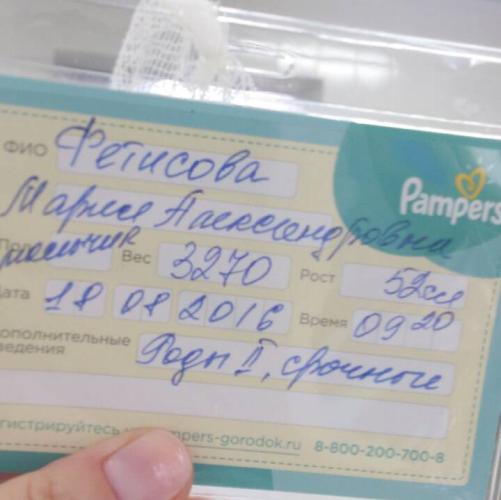 ФИО Фетисова
Pampers
Мария Александровна
Пол мальчик Вес 3270 Рост 52см
Дата 18 08 2016 Время 09 20
дополнительные сведения Роды II, срочные
егистрируйтесь pampers-gorodok.ru 8-800-200-700-8